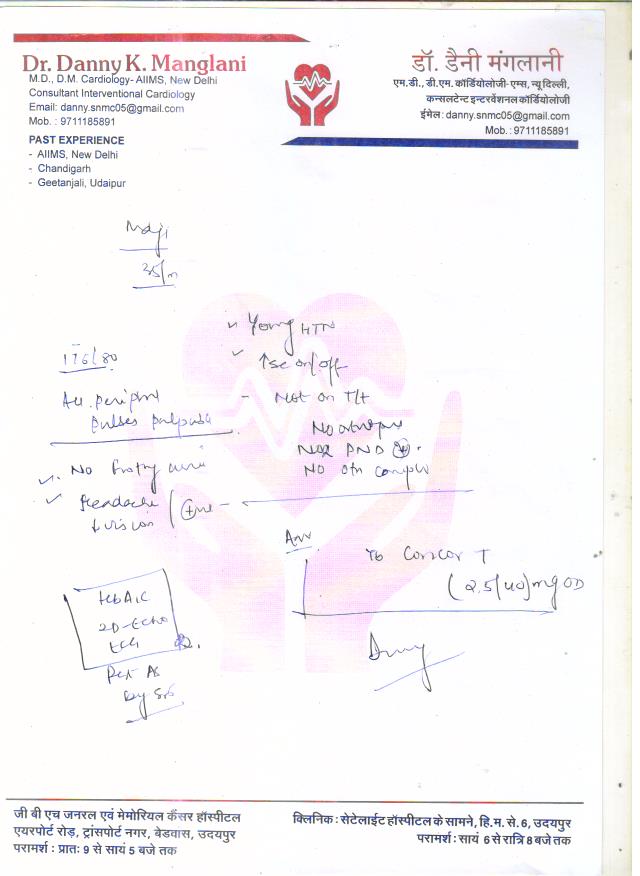 Dr. Danny K. Manglani
M.D., D.M. Cardiology- AIIMS, New Delhi
Consultant Interventional Cardiology
Email: danny.snmc05@gmail.com
Mob. : 9711185891
PAST EXPERIENCE
- AIIMS, New Delhi
- Chandigarh
- Geetanjali, Udaipur
डॉ. डैनी मंगलानी
एम.डी., डी.एम. कॉर्डियोलॉजी-एम्स, न्यू दिल्ली,
कन्सलटेन्ट इन्टरवेंशनल कॉर्डियोलॉजी
ईमेल : danny.snmc05@gmail.com
Mob. : 9711185891
35/m
Young HTN
176/80
on/off
All peripheral
pulses
- Not on T/t
No
PND
No
No
Headache
Adv
Tb Concor T
(2.5/40) mg OD
HbA1C
2D-Echo
ECG
जी बी एच जनरल एवं मेमोरियल कैंसर हॉस्पीटल
एयरपोर्ट रोड़, ट्रांसपोर्ट नगर, बेडवास, उदयपुर
परामर्श : प्रातः 9 से सायं 5 बजे तक
क्लिनिक : सेटेलाईट हॉस्पिटल के सामने, हि.म. से. 6, उदयपुर
परामर्श : सायं 6 से रात्रि 8 बजे तक